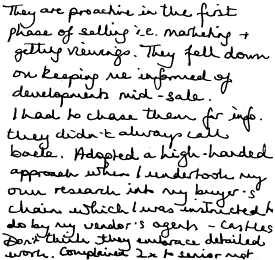 They are proactive in the first
phase of selling i.e. marketing +
getting viewings. They fell down
on keeping me informed of
developments mid-sale.
I had to chase them for info.
they didn't always call
back. Adopted a high-handed
approach when I undertook my
own research into my buyer's
chain which I was instructed to
do by my vendor's agents - Castles
Don't think they embrace detailed
work. Complained 2x to senior not